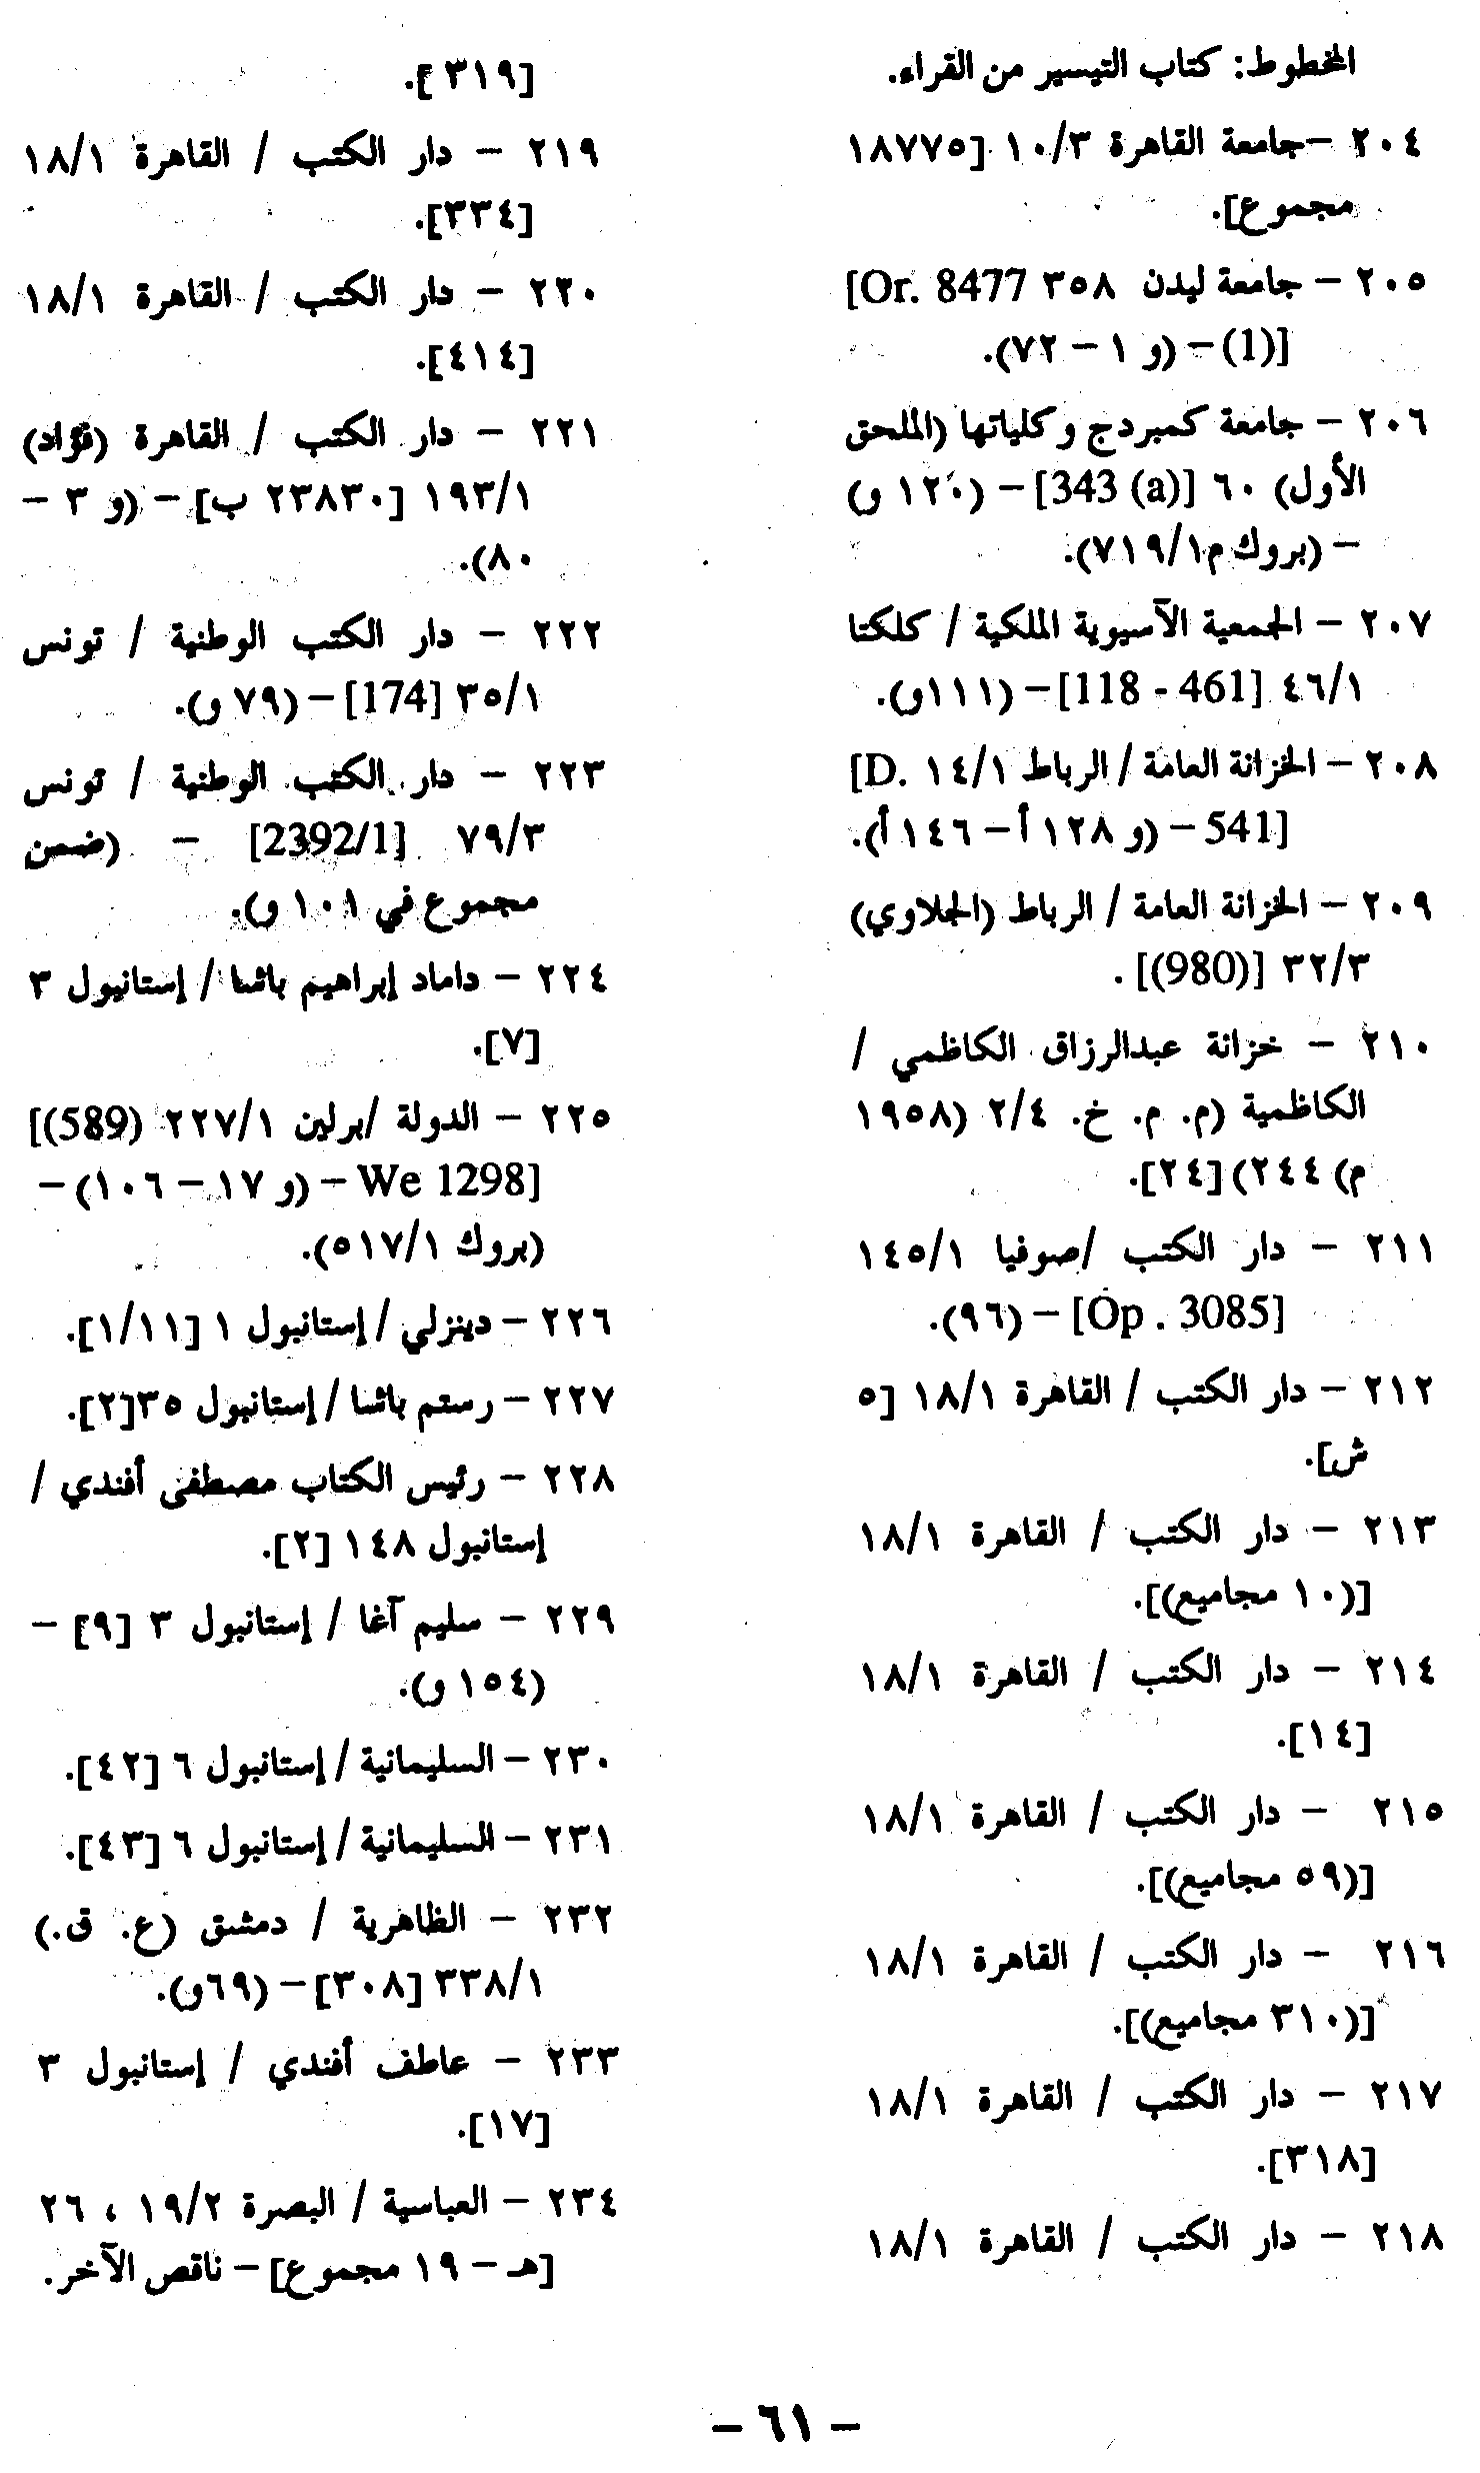 المخطوط: كتاب التيسير من القراء.
٢٠٤ –جامعة القاهرة ١٠/٣ [١٨٧٧٥
مجموع].
٢٠٥ – جامعة ليدن ٣٥٨ [Or. 8477
(1)] – (و ١ – ٧٢).
٢٠٦ – جامعة كمبردج وكلياتها (الملحق
الأول) ٦٠ [343 (a)] – (١٢٠ و)
– (بروك م٧١٩/١).
٢٠٧ – الجمعية الآسيوية الملكية / كلكتا
٤٦/١ [461 - 118] – (١١١و).
٢٠٨ – الخزانة العامة / الرباط ١٤/١ [D.
541] – (و ١٢٨ أ – ١٤٦ أ).
٢٠٩ – الخزانة العامة / الرباط (الجلاوي)
٣٢/٣ [(980)] .
٢١٠ – خزانة عبدالرزاق الكاظمي /
الكاظمية (م. م. خ. ٢/٤ (١٩٥٨
م) ٢٤٤) [٢٤].
٢١١ – دار الكتب /صوفيا ١٤٥/١
[Op . 3085] – (٩٦).
٢١٢ – دار الكتب / القاهرة ١٨/١ [٥
ش].
٢١٣ – دار الكتب / القاهرة ١٨/١
[(١٠ مجاميع)].
٢١٤ – دار الكتب / القاهرة ١٨/١
[١٤].
٢١٥ – دار الكتب / القاهرة ١٨/١
[(٥٩ مجاميع)].
٢١٦ – دار الكتب / القاهرة ١٨/١
[(٣١٠ مجاميع)].
٢١٧ – دار الكتب / القاهرة ١٨/١
[٣١٨].
٢١٨ – دار الكتب / القاهرة ١٨/١
[٣١٩].
٢١٩ – دار الكتب / القاهرة ١٨/١
[٣٣٤].
٢٢٠ – دار الكتب / القاهرة ١٨/١
[٤١٤].
٢٢١ – دار الكتب / القاهرة (فؤاد)
١٩٣/١ [٢٣٨٣٠ ب] – (و ٣ –
٨٠).
٢٢٢ – دار الكتب الوطنية / تونس
٣٥/١ [174] – (٧٩ و).
٢٢٣ – دار الكتب الوطنية / تونس
٧٩/٣ [2392/1] – (ضمن
مجموع في ١٠١ و).
٢٢٤ – داماد إبراهيم باشا / إستانبول ٣
[٧].
٢٢٥ – الدولة /برلين ٢٢٧/١ [(589)
We 1298] – (و ١٧ – ١٠٦) –
(بروك ٥١٧/١).
٢٢٦ – دينزلي / إستانبول ١ [١/١١].
٢٢٧ – رستم باشا / إستانبول ٣٥[٢].
٢٢٨ – رئيس الكتاب مصطفى أفندي /
إستانبول ١٤٨ [٢].
٢٢٩ – سليم آغا / إستانبول ٣ [٩] –
(١٥٤ و).
٢٣٠ – السليمانية / إستانبول ٦ [٤٢].
٢٣١ – السليمانية / إستانبول ٦ [٤٣].
٢٣٢ – الظاهرية / دمشق (ع. ق.)
٣٣٨/١ [٣٠٨] – (٦٩و).
٢٣٣ – عاطف أفندي / إستانبول ٣
[١٧].
٢٣٤ – العباسية / البصرة ١٩/٢ ، ٢٦
[هـ – ١٩ مجموع] – ناقص الآخر.
– ٦١ –